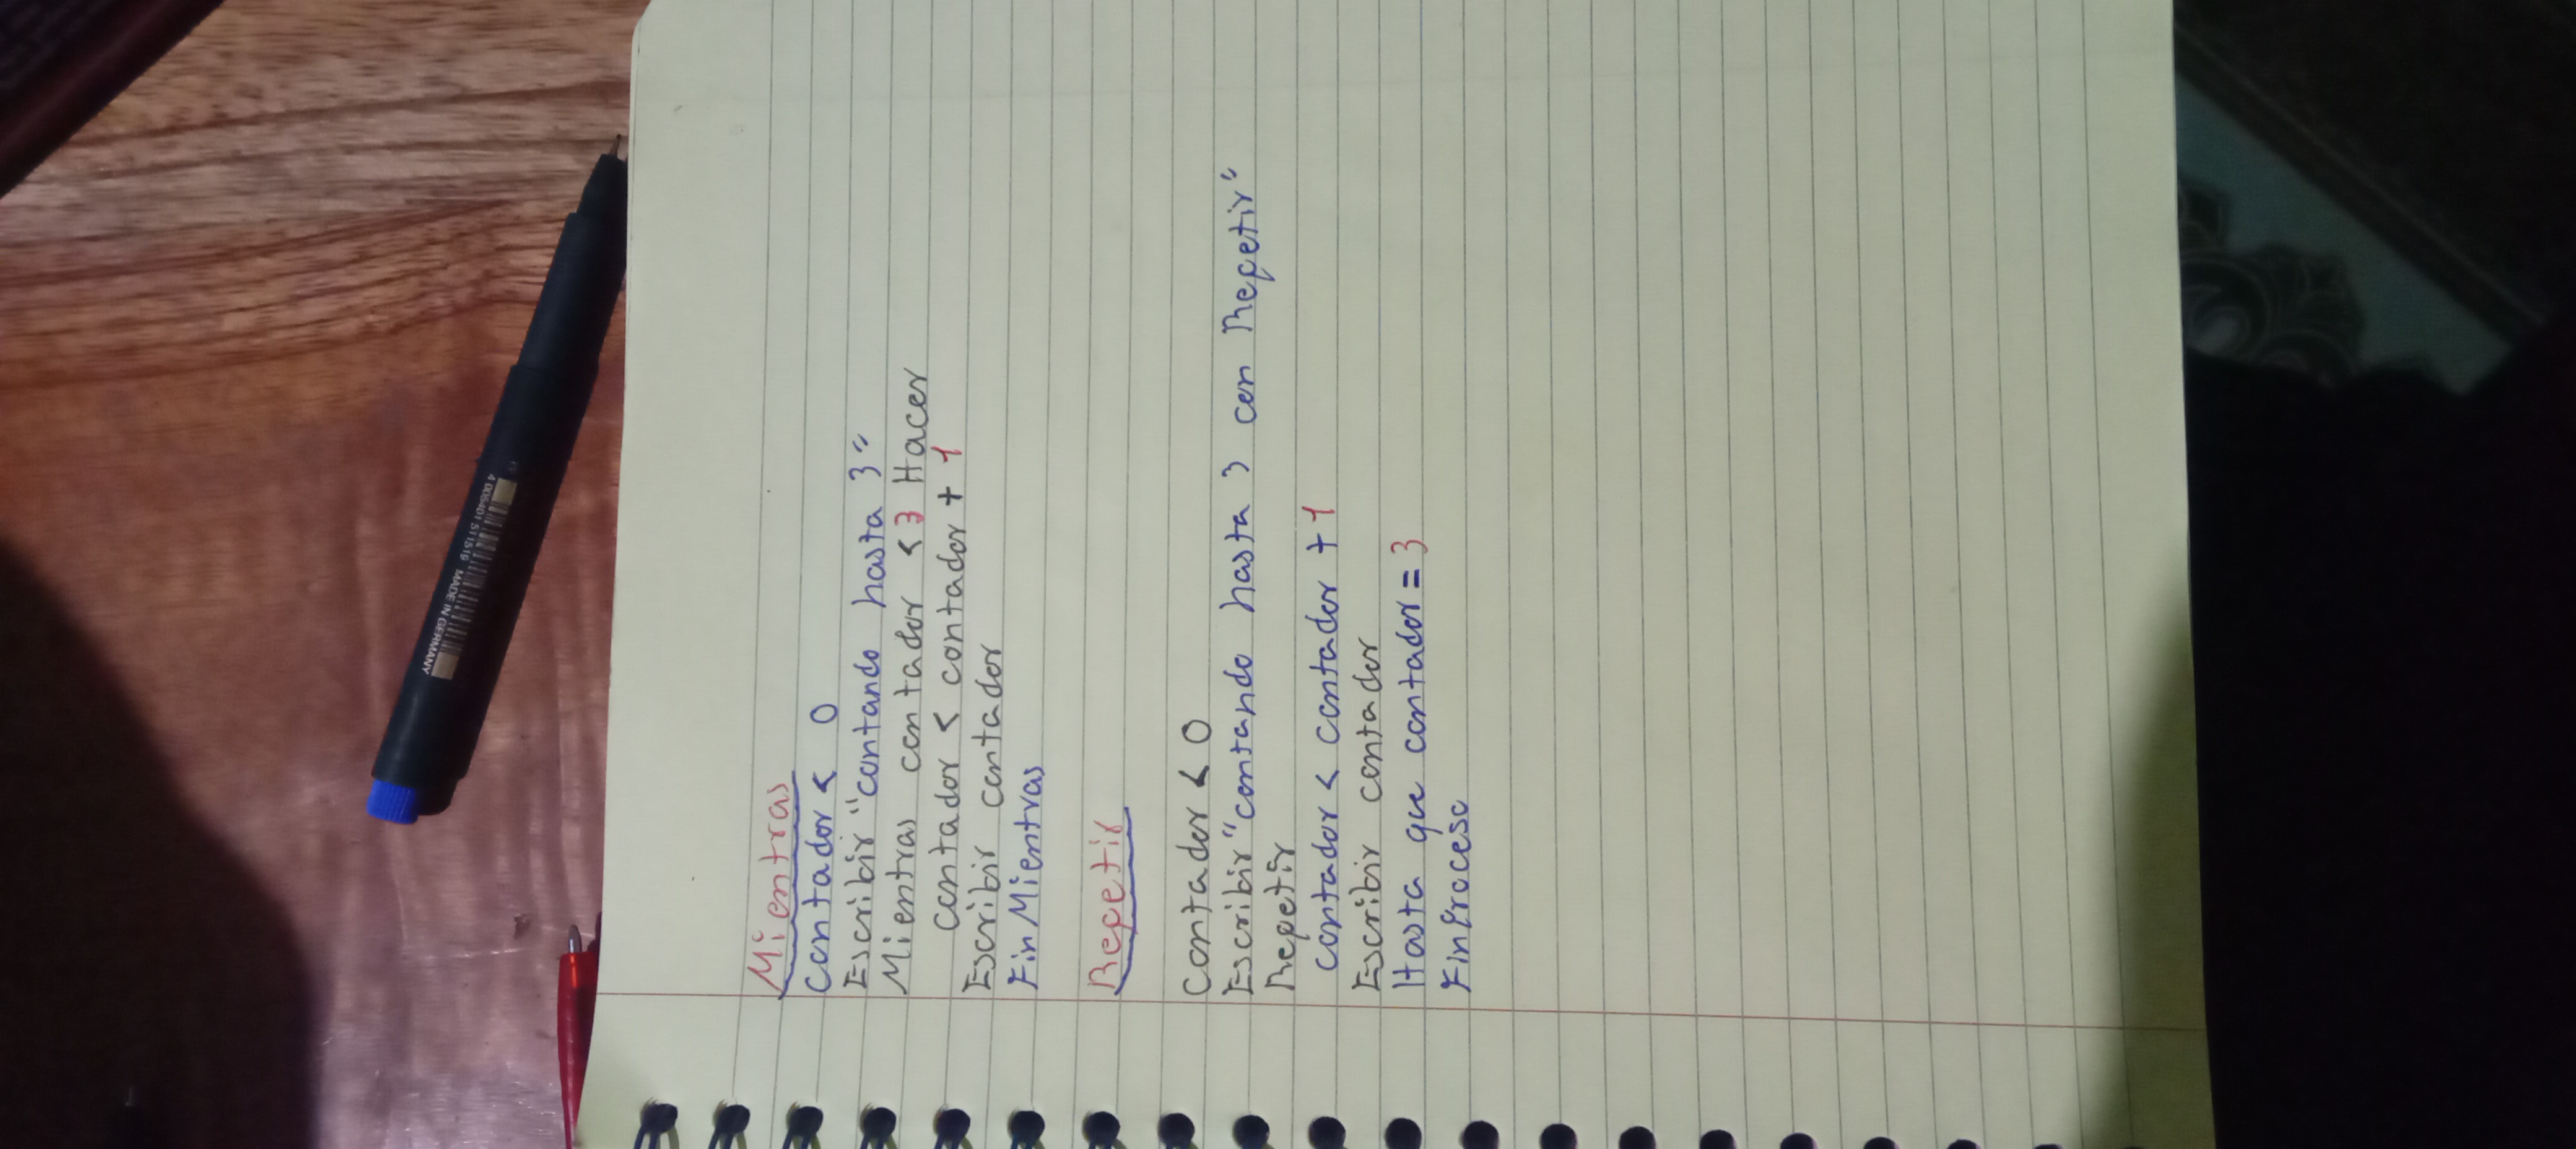 Mientras
contador < 0
Escribir "contando hasta 3"
Mientras contador < 3 Hacer
contador < contador + 1
Escribir contador
FinMientras
Repetir
Contador < 0
Escribir "contando hasta 3 con Repetir"
Repetir
contador < contador + 1
Escribir contador
Hasta que contador = 3
FinProceso
MADE IN GERMANY